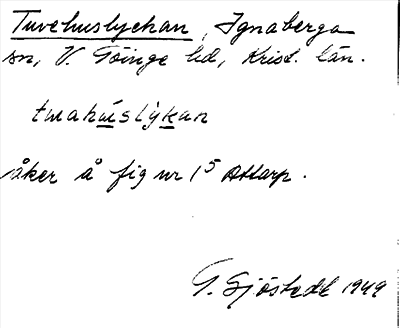 Tuvehuslyckan, Ignaberga
sn, V. Göinge hd, Krist. län.
tuahúslỳkan
åker å fig nr 15 Attarp.
G. Sjöstedt 1949